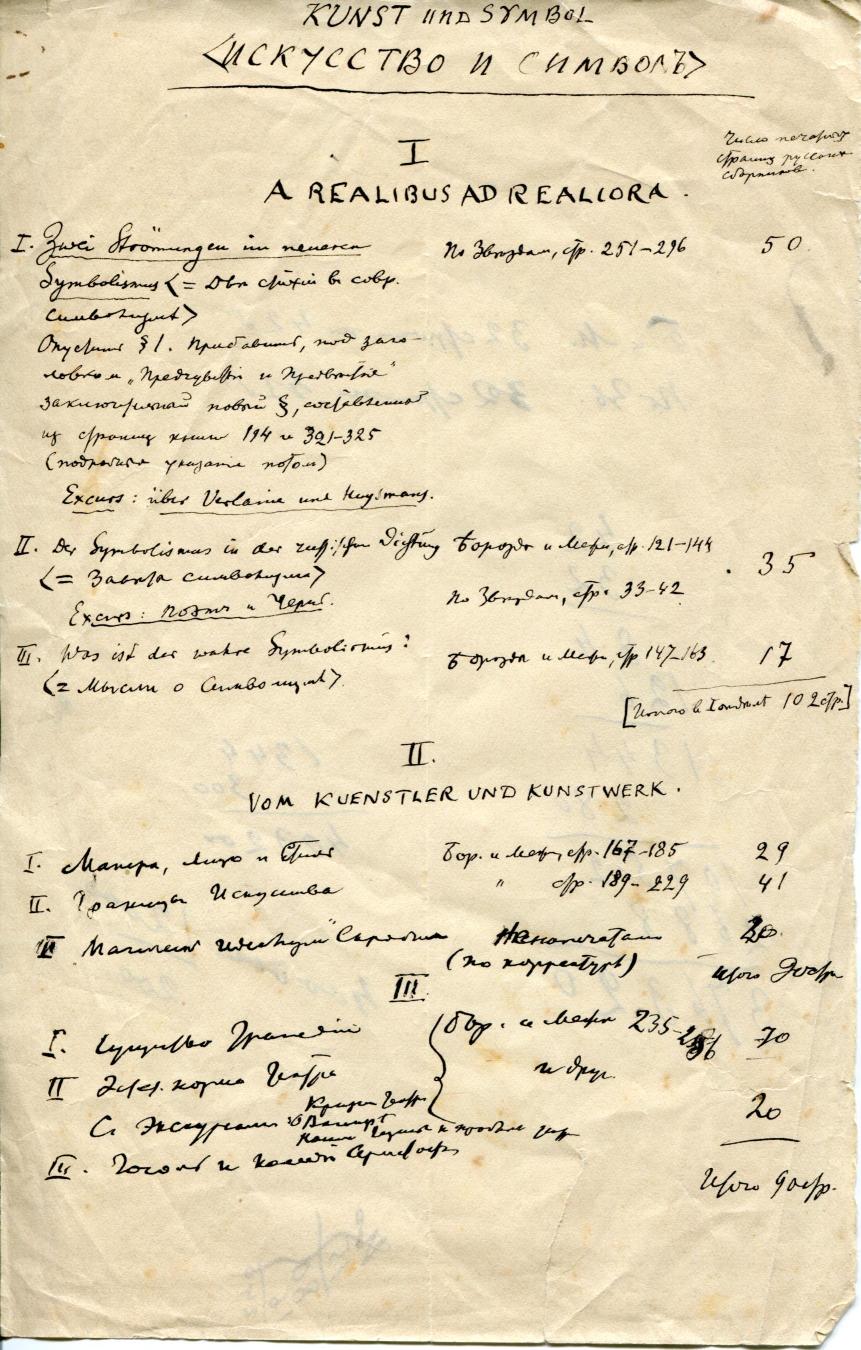 KUNST UND SYMBOL
<ИСКУССТВО И СИМВОЛЪ>
Число печатныхъ
страниц русских
сборников.
I
A REALIBUS AD REALIORA.
I. Zwei Strömungen im neueren По Звездам, стр. 251–296 50
Symbolismus <= Двѣ стихіи в совр.
символизмѣ>
Опустить § 1. Прибавить, под заго-
ловком „Предчувствія и Предвѣстія"
заключительный новый §, составленный
из страниц книги 194 и 321–325
(подробныя указанія потом)
Excurs: über Verlaine und Huysmans.
II. Der Symbolismus in der russischen Dichtung Борозды и Межи, стр. 121–144 35
<= Завѣты символизма>
По Звездам, стр. 33–42
Excurs: Поэтъ и Чернь.
III. Was ist der wahre Symbolismus? Борозды и Межи, стр 147–163. 17
<= Мысли о Символизмѣ>
[Итого в I 102 стр.]
II.
VOM KUENSTLER UND KUNSTWERK.
I. Манера, лицо и стиль Бор. и Межи, стр. 167–185 29
II. Границы Искусства " стр. 189–229 41
III Скрябина Ненапечатано 20.
(по корректурѣ) Итого 90 стр.
III
I. Существо Трагедіи Бор. и Межи 235– 70
II Эст. норма Театра и друг.
Съ Экскурсами: Кризис Театра 20
о Вагнерѣ
III. Гоголь и Аристофан
Итого 90 стр.